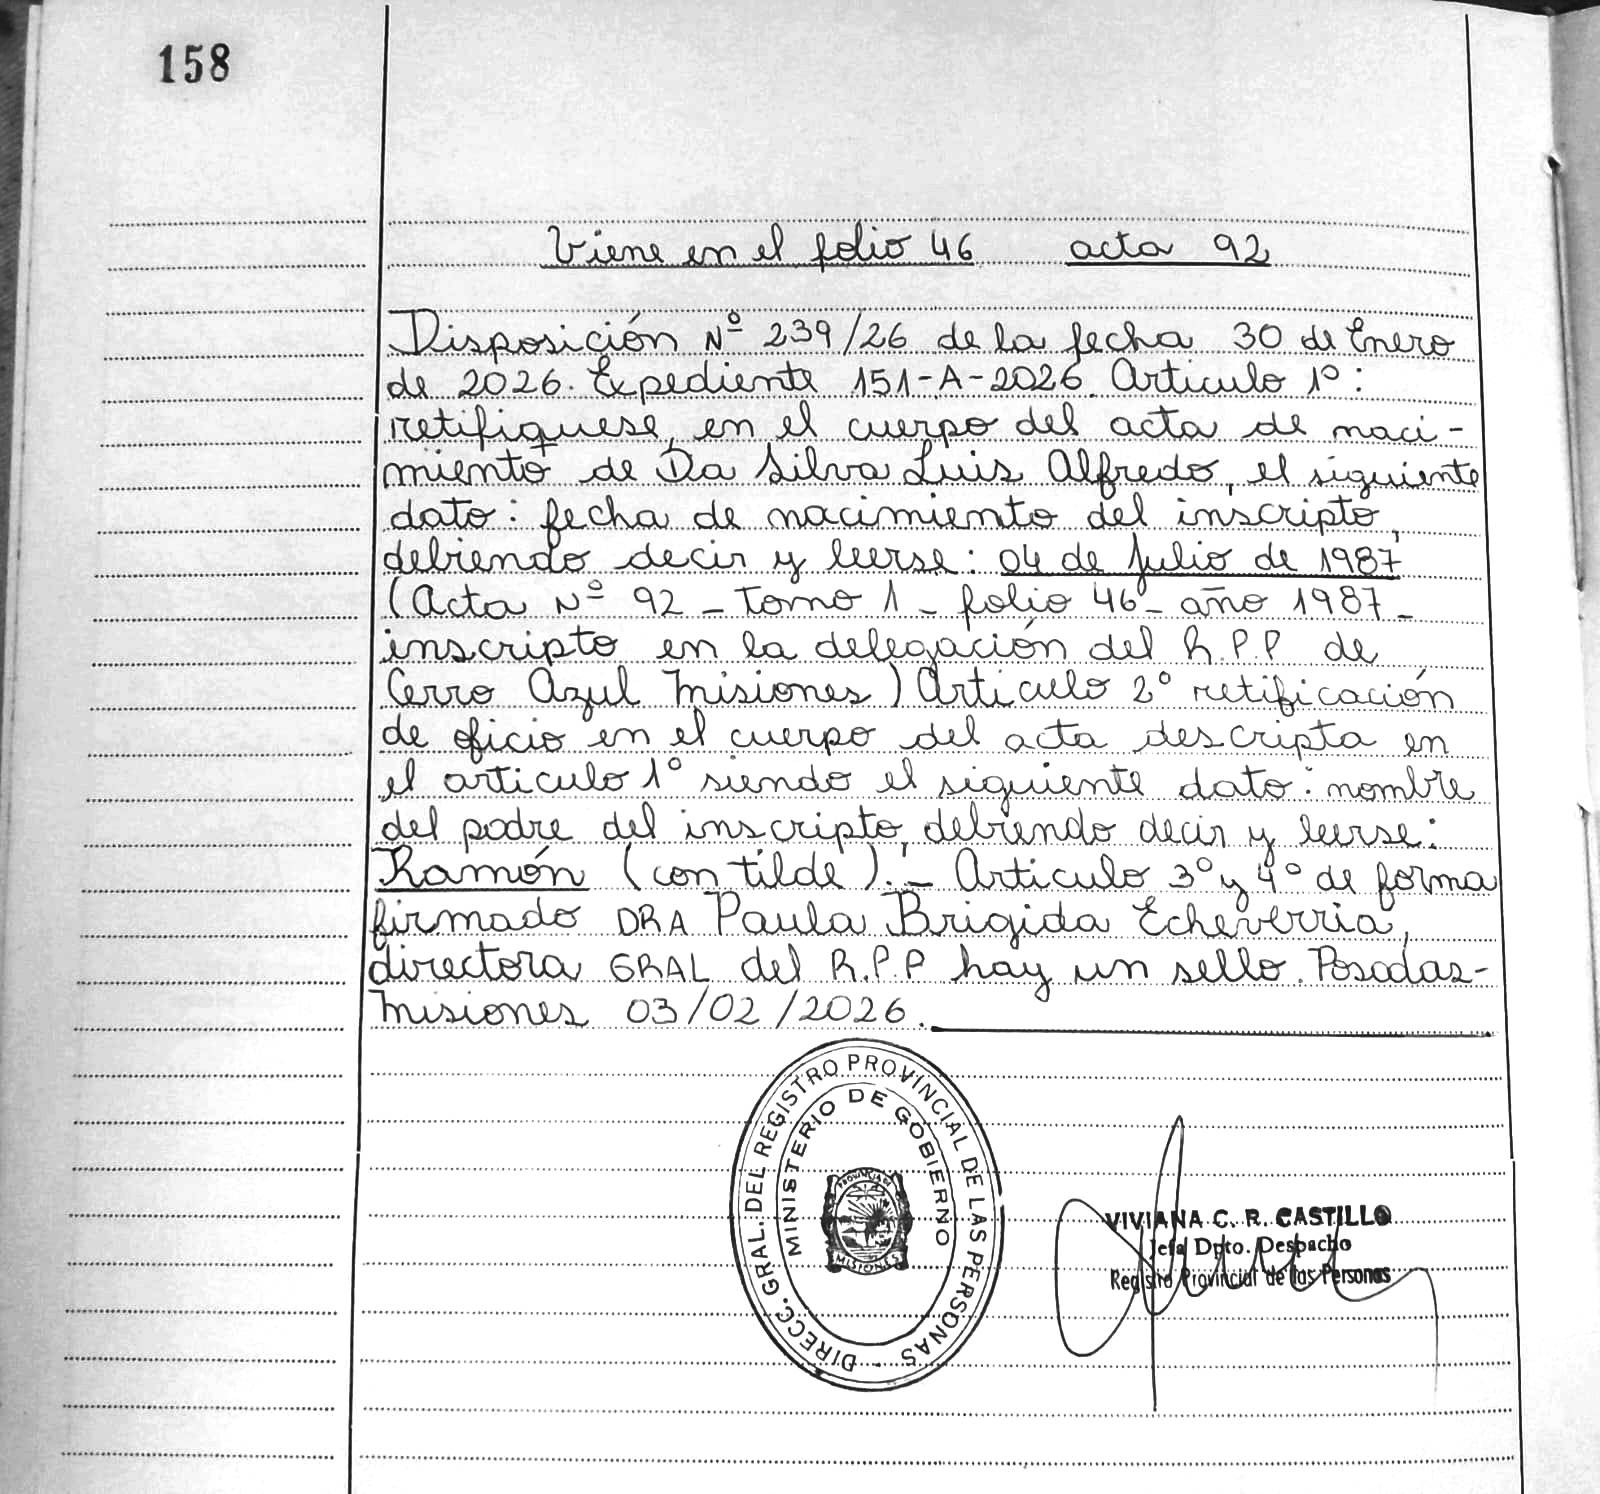 158
Viene en el folio 46 acta 92
Disposición Nº 239/26 de la fecha 30 de Enero
de 2026. Expediente 151-A-2026. Articulo 1º:
retifiquese, en el cuerpo del acta de naci-
miento de Da Silva Luis Alfredo, el siguiente
dato: fecha de nacimiento del inscripto,
debiendo decir y leerse: 04 de Julio de 1987
(Acta Nº 92 - Tomo 1 - folio 46 - año 1987 -
inscripto en la delegación del R.P.P de
Cerro Azul Misiones) Articulo 2º retificación
de oficio en el cuerpo del acta descripta en
el articulo 1º siendo el siguiente dato: nombre
del padre del inscripto, debiendo decir y leerse:
Ramón (con tilde).- Articulo 3º y 4º de forma
firmado DRA Paula Brigida Echeverria,
directora GRAL del R.P.P hay un sello. Posadas-
Misiones 03/02/2026.
DIRECC. GRAL. DEL REGISTRO PROVINCIAL DE LAS PERSONAS
MINISTERIO DE GOBIERNO
PROVINCIA DE
MISIONES
VIVIANA C. R. CASTILLO
Jefa Dpto. Despacho
Registro Provincial de las Personas